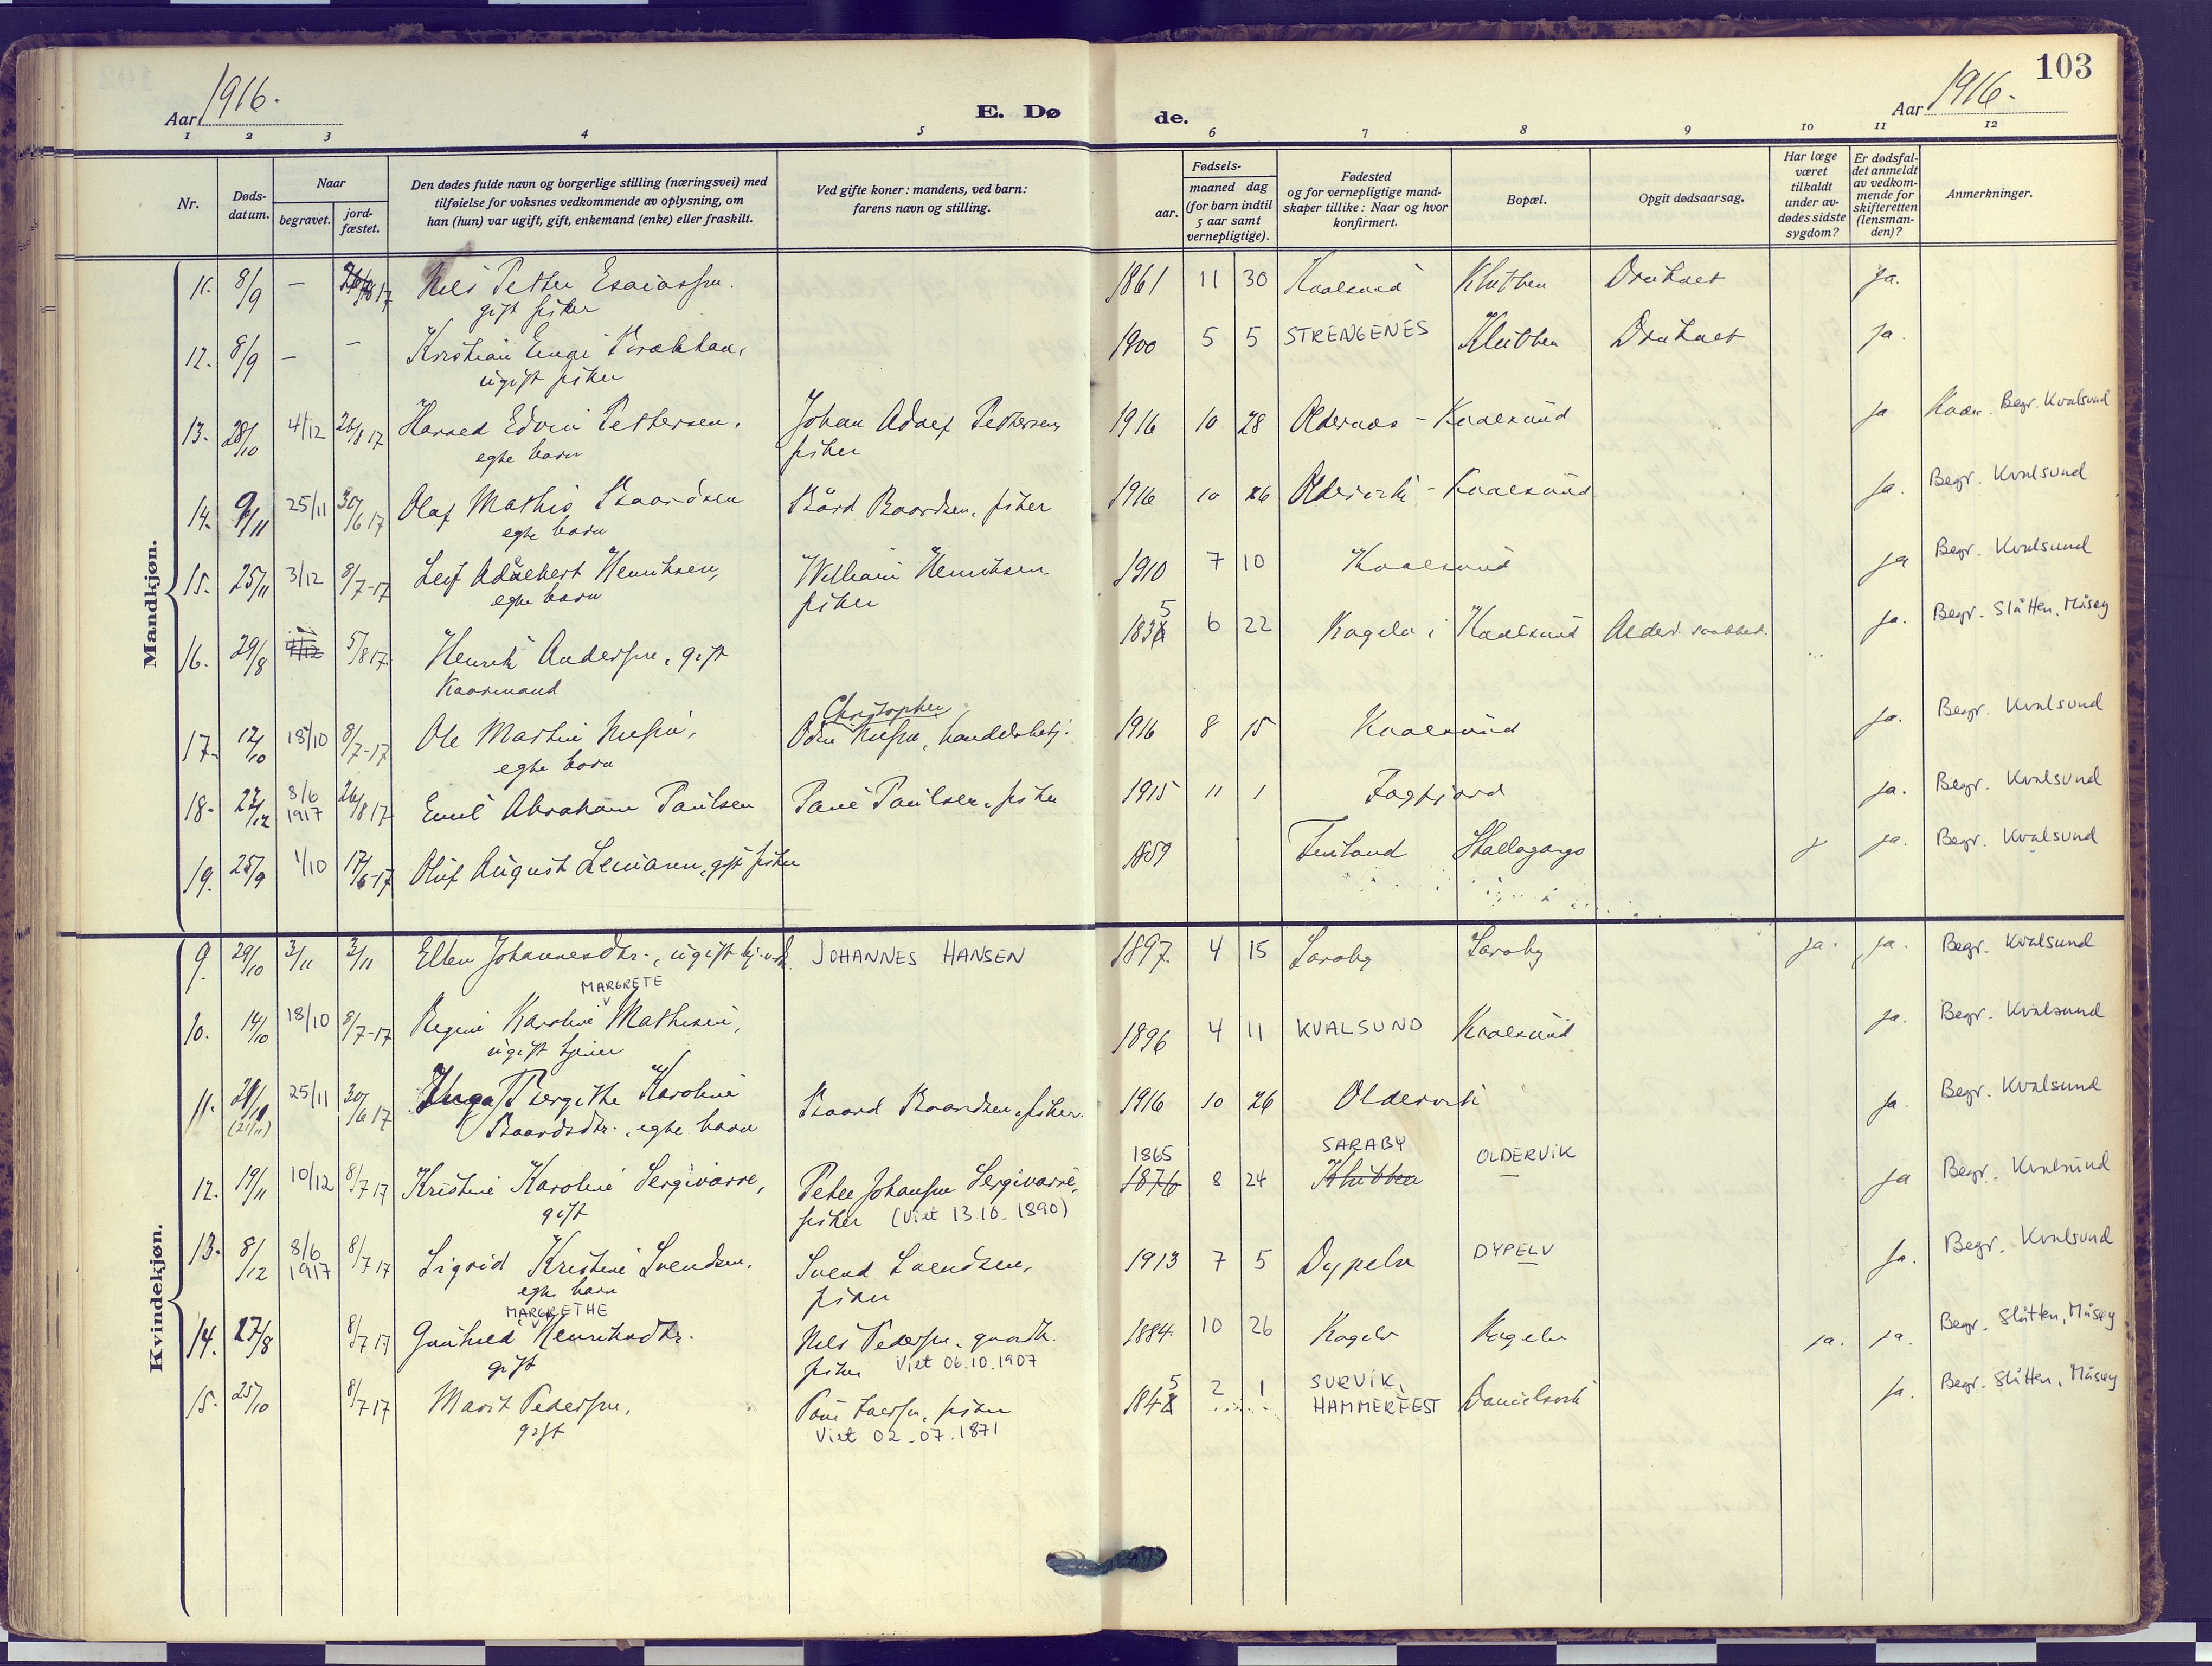 103
Aar 1916.
E. Dø de.
Aar 1916.
1 2 3 4 5 6 7 8 9 10 11 12
Nr.
Døds-
datum.
Naar
begravet.
jord-
fæstet.
Den dødes fulde navn og borgerlige stilling (næringsvei) med
tilføielse for voksnes vedkommende av oplysning, om
han (hun) var ugift, gift, enkemand (enke) eller fraskilt.
Ved gifte koner: mandens, ved barn:
farens navn og stilling.
Fødsels-
aar.
maaned dag
(for barn indtil
5 aar samt
vernepligtige).
Fødested
og for vernepligtige mand-
skaper tillike: Naar og hvor
konfirmert.
Bopæl.
Opgit dødsaarsag.
Har læge
været
tilkaldt
under av-
dødes sidste
sygdom?
Er dødsfal-
det anmeldt
av vedkom-
mende for
skifteretten
(lensman-
den)?
Anmerkninger.
Mandkjøn.
11. 8/9 — Nils Petter Esaiassen. 1861 11 30 Kvalsund Klubben Druknet ja.
gift fisker
12. 8/9 — — Kristian 1900 5 5 STRENGENES Klubben Druknet ja.
ugift fisker
13. 28/10 4/12 26/8 17 Edvin Pettersen, Johan Adolf Pettersen 1916 10 28 Oldernes - Kvalsund ja Begr. Kvalsund
egte barn fisker
14. 9/11 25/11 30/6 17 Olaf Mathis Baardsen Bård Baardsen, fisker 1916 10 26 Oldervik - Kvalsund ja. Begr. Kvalsund
egte barn
15. 25/11 3/12 8/7-17 Leif Adalbert Henriksen, William Henriksen 1910 7 10 Kvalsund ja Begr. Kvalsund
egte barn fisker
16. 29/8 5/8 17 Henrik Andersen, gift 1835 6 22 Kogelv i Kvalsund Alderd. svakhet. ja. Begr. Slåtten, Måsøy
Kaarmand
Christopher
17. 12/10 18/10 8/7-17 Ole Martin Odin handelsbetj. 1916 8 15 Kvalsund ja. Begr. Kvalsund
egte barn
18. 8/6 1917 26/8 17 Emil Abraham Paulsen Paul Paulsen, fisker 1915 11 1 Fægfjord ja. Begr. Kvalsund
19. 25/9 1/10 17/6-17 Oluf August gift fisker 1859 Finland ja. Begr. Kvalsund
Kvindekjøn.
9. 29/10 3/11 3/11 Ellen Johannesdtr., ugift JOHANNES HANSEN 1897 4 15 Saraby Saraby ja. ja. Begr. Kvalsund
MARGRETE
10. 14/10 18/10 8/7-17 Regine Karoline Mathisen, 1896 4 11 KVALSUND Kvalsund ja. Begr. Kvalsund
ugift tjener
11. 25/11 30/6 17 Inga Bergithe Karoline Baard Baardsen, fisker. 1916 10 26 Oldervik ja. Begr. Kvalsund
(21/11) Baardsdtr., egte barn
1865 SARABY OLDERVIK
12. 19/11 10/12 8/7 17 Kristine Karoline Sergivarre, Peder Johansen Sergivarre, 1876 8 24 Klubben ja Begr. Kvalsund
gift fisker (Viet 13.10.1890)
13. 8/12 8/6 1917 8/7 17 Sigrid Kristine Svendsen, Svend Svendsen, 1913 7 5 Dypelv DYPELV ja. Begr. Kvalsund
egte barn fisker
MARGRETHE
14. 27/8 8/7 17 Gunhild Henriksdtr. Nils Pedersen, gaardb. 1884 10 26 Kogelv Kogelv ja. ja. Begr. Slåtten, Måsøy
gift fisker Viet 06.10.1907
15. 25/10 8/7 17 Marit Pedersen, Poul Iversen, fisker 1845 2 1 SURVIK, HAMMERFEST Danielsvik ja. Begr. Slåtten, Måsøy
gift Viet 02.07.1871